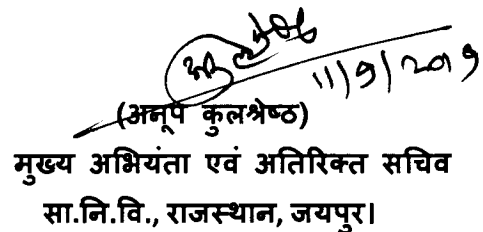 11/9/2019
(अनूप कुलश्रेष्ठ)
मुख्य अभियंता एवं अतिरिक्त सचिव
सा.नि.वि., राजस्थान, जयपुर।